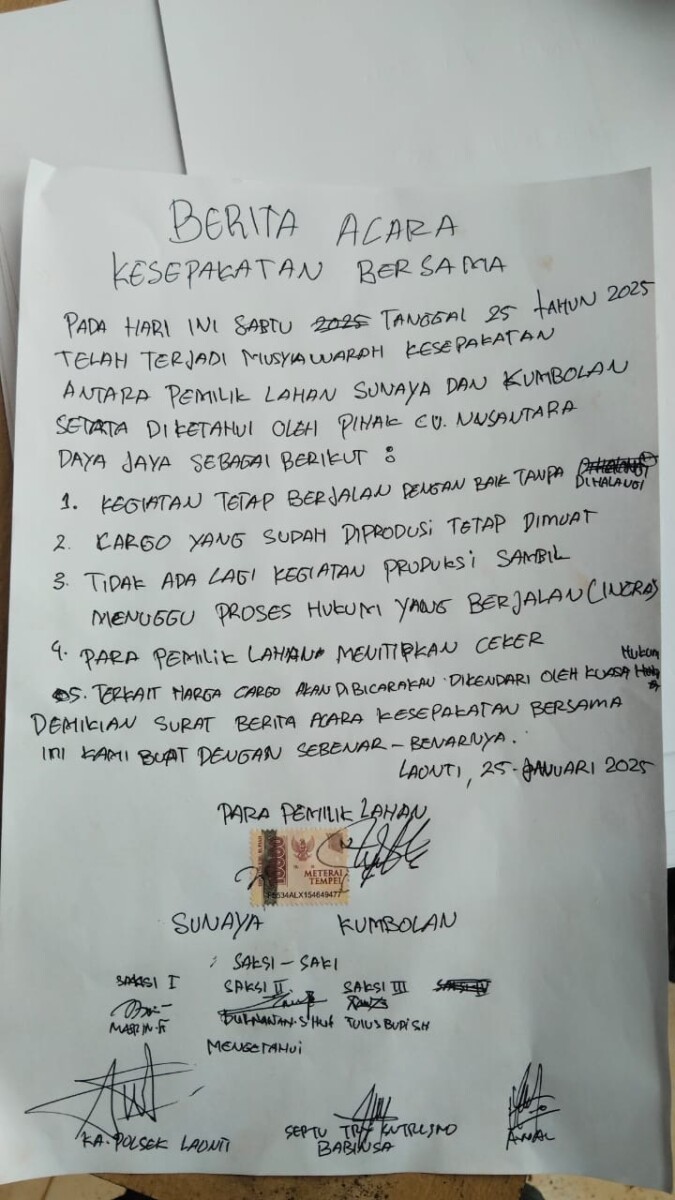 BERITA ACARA
KESEPAKATAN BERSAMA
PADA HARI INI SABTU 2025 TANGGAL 25 TAHUN 2025
TELAH TERJADI MUSYAWARAH KESEPAKATAN
ANTARA PEMILIK LAHAN SUNAYA DAN KUMBOLAN
DIKETAHUI OLEH PIHAK CV. NUSANTARA
DAYA JAYA SEBAGAI BERIKUT :
1. KEGIATAN TETAP BERJALAN DENGAN BAIK TANPA
DIHALANGI
2. CARGO YANG SUDAH DIPRODUSI TETAP DIMUAT
3. TIDAK ADA LAGI KEGIATAN PRODUKSI SAMBIL
MENUGGU PROSES HUKUM YANG BERJALAN (INCRA)
4. PARA PEMILIK LAHAN MENITIPKAN CEKER
5. TERKAIT HARGA CARGO AKAN DIBICARAKAN DIKENDARI OLEH KUASA HUKUM
DEMIKIAN SURAT BERITA ACARA KESEPAKATAN BERSAMA
INI KAMI BUAT DENGAN SEBENAR-BENARNYA.
LAONTI, 25-JANUARI 2025
PARA PEMILIK LAHAN
10000
METERAI
TEMPEL
SUNAYA KUMBOLAN
SAKSI-SAKI
SAKSI I SAKSI II SAKSI III
TULUS BUDI SH
MENGETAHUI
KA. POLSEK LAONTI
BABINSA